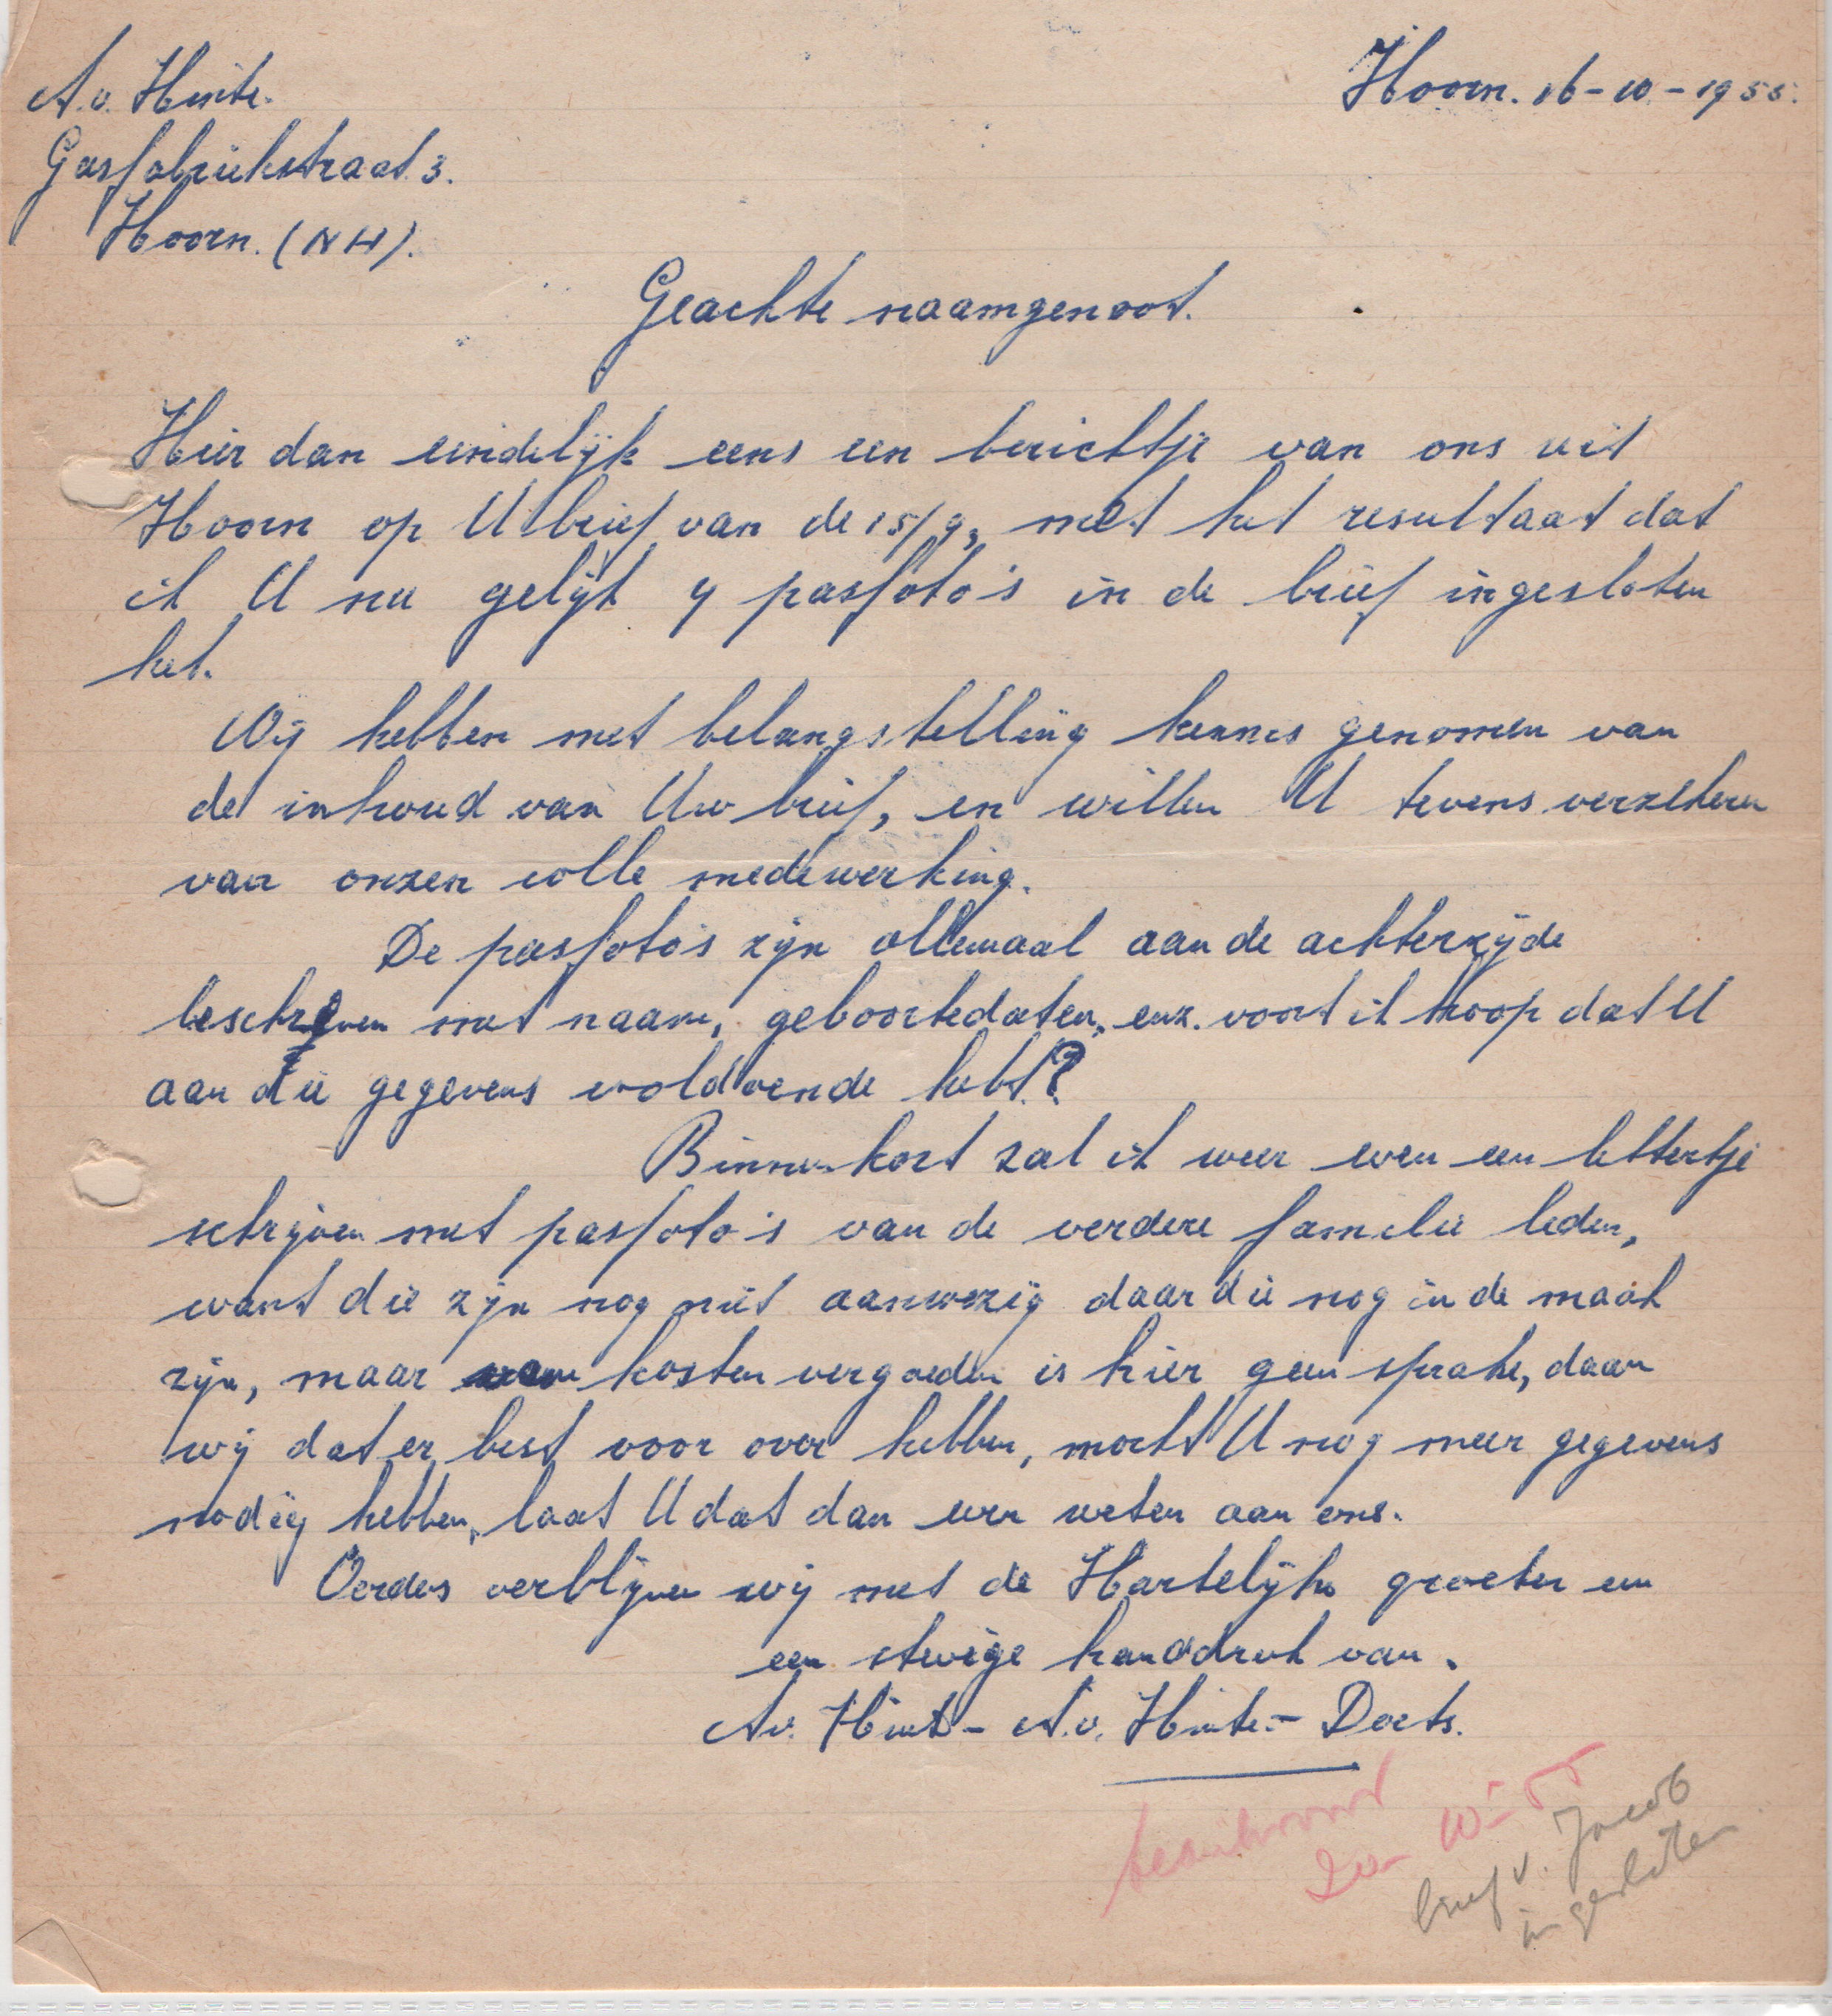 A. v. Hinte.
Hoorn. 16-10-1955.
Gasfabriekstraat 3.
Hoorn. (NH).
Geachte naamgenoot.
Hier dan eindelijk eens een berichtje van ons uit
Hoorn op U brief van de 15/9, met het resultaat dat
ik U nu gelijk 4 pasfoto's in de brief ingesloten
heb.
Wij hebben met belangstelling kennis genomen van
de inhoud van Uw brief, en willen U tevens verzekeren
van onzen volle medewerking.
De pasfoto's zijn allemaal aan de achterzijde
beschreven met naam, geboortedaten, enz. voort ik hoop dat U
aan die gegevens voldoende hebt?
Binnenkort zal ik weer even een lettertje
schrijven met pasfoto's van de verdere familie leden,
want die zijn nog niet aanwezig daar die nog in de maak
zijn, maar kosten vergoeden is hier geen sprake, daar
wij dat er best voor over hebben, mocht U nog meer gegevens
nodig hebben, laat U dat dan even weten aan ons.
Verders verblijven wij met de Hartelijke groeten en
een stevige handdruk van.
A v. Hinte - A. v. Hinte - Doets.
beantwoord
10-55
brief v. Jacob
ingesloten